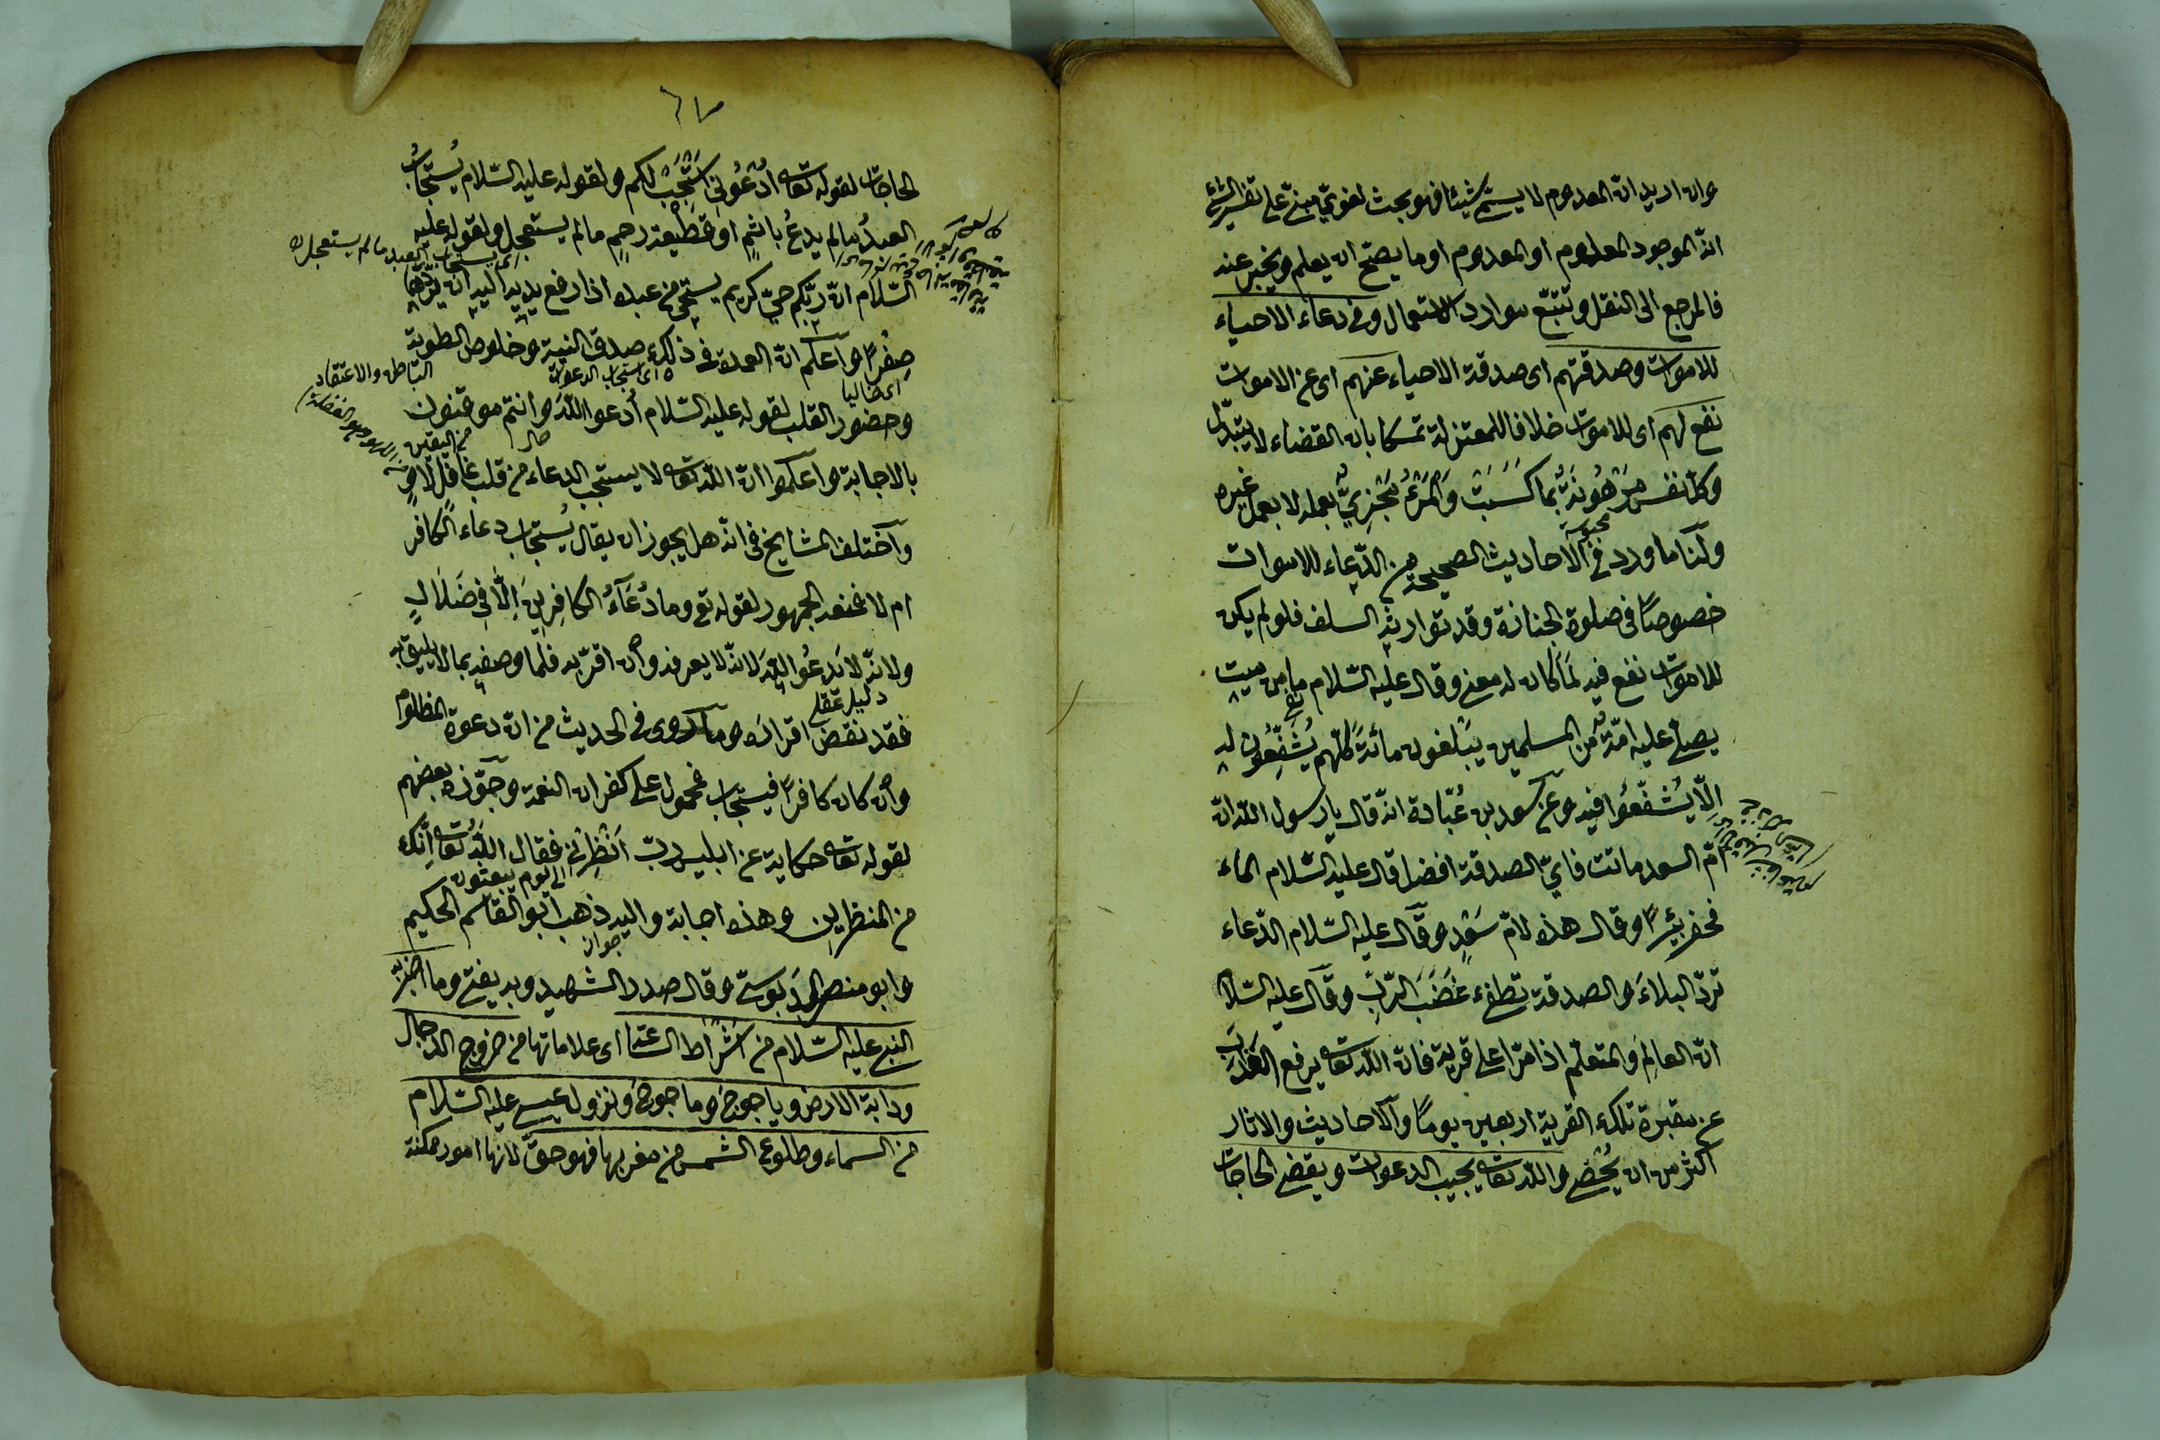 وان اريد ان المعدوم لا يسمى شيئا فهو بحث لغوى مبنى على تفسير الشئ
انه الموجود المعلوم او المعدوم او ما يصح ان يعلم ويخبر عنه
فالمرجع الى النقل وتتبع موارد الاستعمال وفى دعاء الاحياء
للاموات وصدقتهم اى صدقة الاحياء عنهم اى عن الاموات
نفع لهم اى للاموات خلافا للمعتزلة تمسكا بان القضاء لا يتبدل
وكل نفس مَرْهُونَةٌ بما كَسَبَتْ وَالْمَرْءُ مَجْزِىٌّ بعمله لا بعمل غيره
محبوسة
ولَنا ما ورد فى الاحاديث الصحيحة من الدّعاء للاموات
خصوصًا فى صلوة الجنازة وقد توارثه السلف فلو لم يكن
للاموات نفع فيه لَمَا كان له معنى وقال عليه السّلام ما من ميت
يصلّى عليه امّة من المسلمين يَبْلغون مائةً كلّهم يُشَفِّعُون له
اِلّا يُشَفَّعُوا فيه وعن سعد بن عُبَادة انّه قال يا رسول اللّه انّ
امّ السعد ماتت فاىّ الصدقة افضل قال عليه السّلام الماء
فحفر بِئْرًا وقال هذه لامّ سَعْدٍ وقال عليه السّلام الدّعاء
تردّ البلاءَ والصدقة تطفئ غَضَبَ الرّبِّ وقال عليه السّلام
انّ العالِمَ والمتعلّم اذا مرّا على قرية فانّ اللّه تعالى يرفع العَذابَ
عن مقبرة تلك القرية اربعين يومًا والاحاديث والاثار
اكثر من ان يُحْصَى واللّه تعالى يجيب الدعوات ويقضى الحاجات
الحاجات لقوله تعالى اُدْعُونِى اَسْتَجِبْ لكم ولقوله عليه السّلام يُستَجابُ
العبدُ ما لم يدعُ باثمٍ او قَطِيعة رحمٍ ما لم يستعجل ولقوله عليه
اى يستجاب العبد ما لم يستعجل
السّلام انّ ربّكم حىّ كريم يستحيى من عبده اذا رفع يديه اليه ان يردّهما
صِفْرًا واعلم انّ العمدة فى ذلك صدق النيّة وخلوص الطويّة
اى خاليا
اى استجاب الدعوات
الباطن والاعتقاد
وحضور القلب لقوله عليه السّلام اُدعوا اللّهَ وانتم موقنون
حال
من اليقين
بالاجابة واعلموا انّ اللّه تعالى لا يستجيب الدعاء من قلب غافل لاهٍ
من اللهو وهو الغفلة
واختلف المشايخ فى انّه هل يجوز ان يقال يُستجاب دعاء الكافر
ام لا فمنعه الجمهور لقوله تع وما دُعَاءُ الكافِرِينَ اِلّا فِى ضَلَالٍ
ولانّه لا يَدعُو اللّهَ لانّه لا يعرفه وان اقرّ به فلما وصفه بما لا يليق به
دليل عقلى
فقد نقض اقراره وما روى فى الحديث من انّ دعوة المظلوم
وان كان كافرًا فيستجاب فمحمول على كفران النعمة وجوّزه بعضهم
لقوله تعالى حكاية عن ابليس ربّ اَنْظِرْنِى فقال اللّهُ تعالى اِنَّكَ
الى يوم يبعثون
من المنظرين وهذه اجابة واليه ذهب ابو القاسم الحكيم
جواز
وابو منصر الدَبوسىّ وقال صدر الشهيد وبه يفتى وما اخبر به
النبى عليه السّلام من اَشْراط الساعة اى علاماتها من خروج الدجال
ودابّة الارض ويأجوج ومأجوج ونزول عيسى عليه السّلام
من السماء وطلوع الشمس من مغربها فهو حقّ لانها امور ممكنة